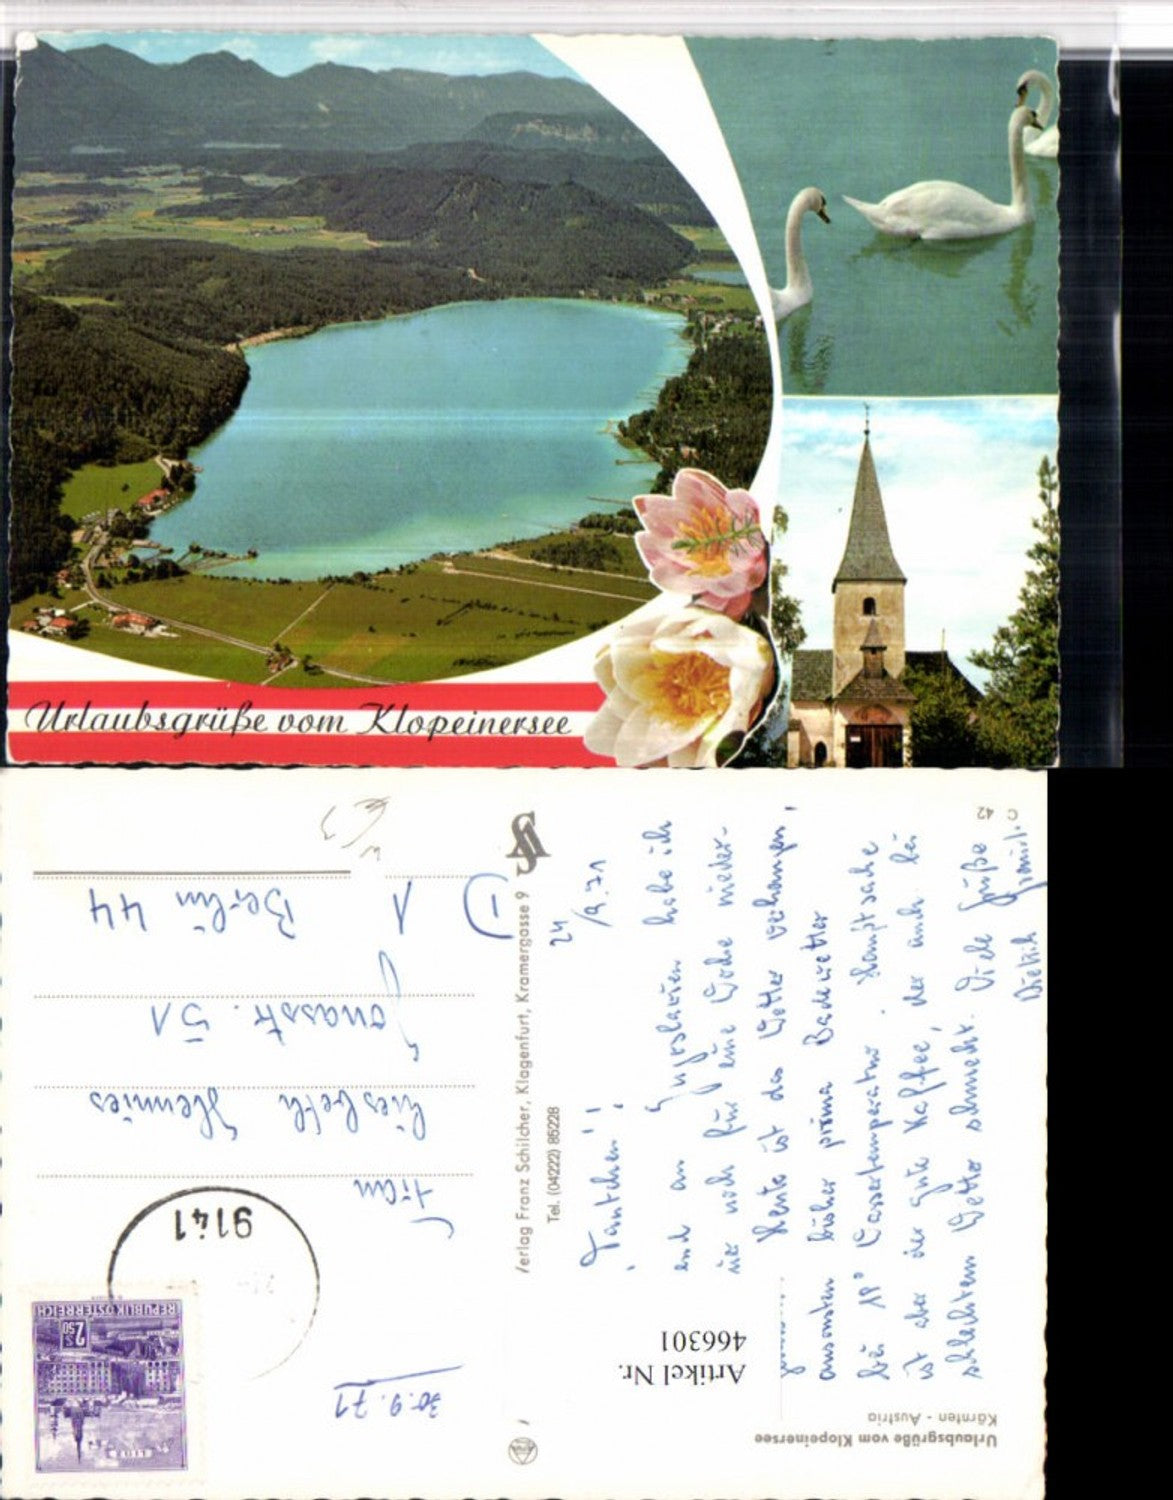 Urlaubsgrüße vom Klopeinersee
C 42
Urlaubsgrüße vom Klopeinersee
Kärnten - Austria
Artikel Nr.
466301
Verlag Franz Schilcher, Klagenfurt, Kramergasse 9
Tel. (04222) 85228
24/9.71
Tantchen!
habe ich
für eine Woche nieder-
Heute ist das Wetter verhangen,
ansonsten bisher prima Badewetter
bei 18° Wassertemperatur. Hauptsache
ist aber der gute Kaffee, der auch bei
schlechtem Wetter schmeckt. Viele Grüße
30.9.71
REPUBLIK ÖSTERREICH
2.50
9141
Frau
Liesbeth Hennies
Jonasstr. 51
D 1 Berlin 44